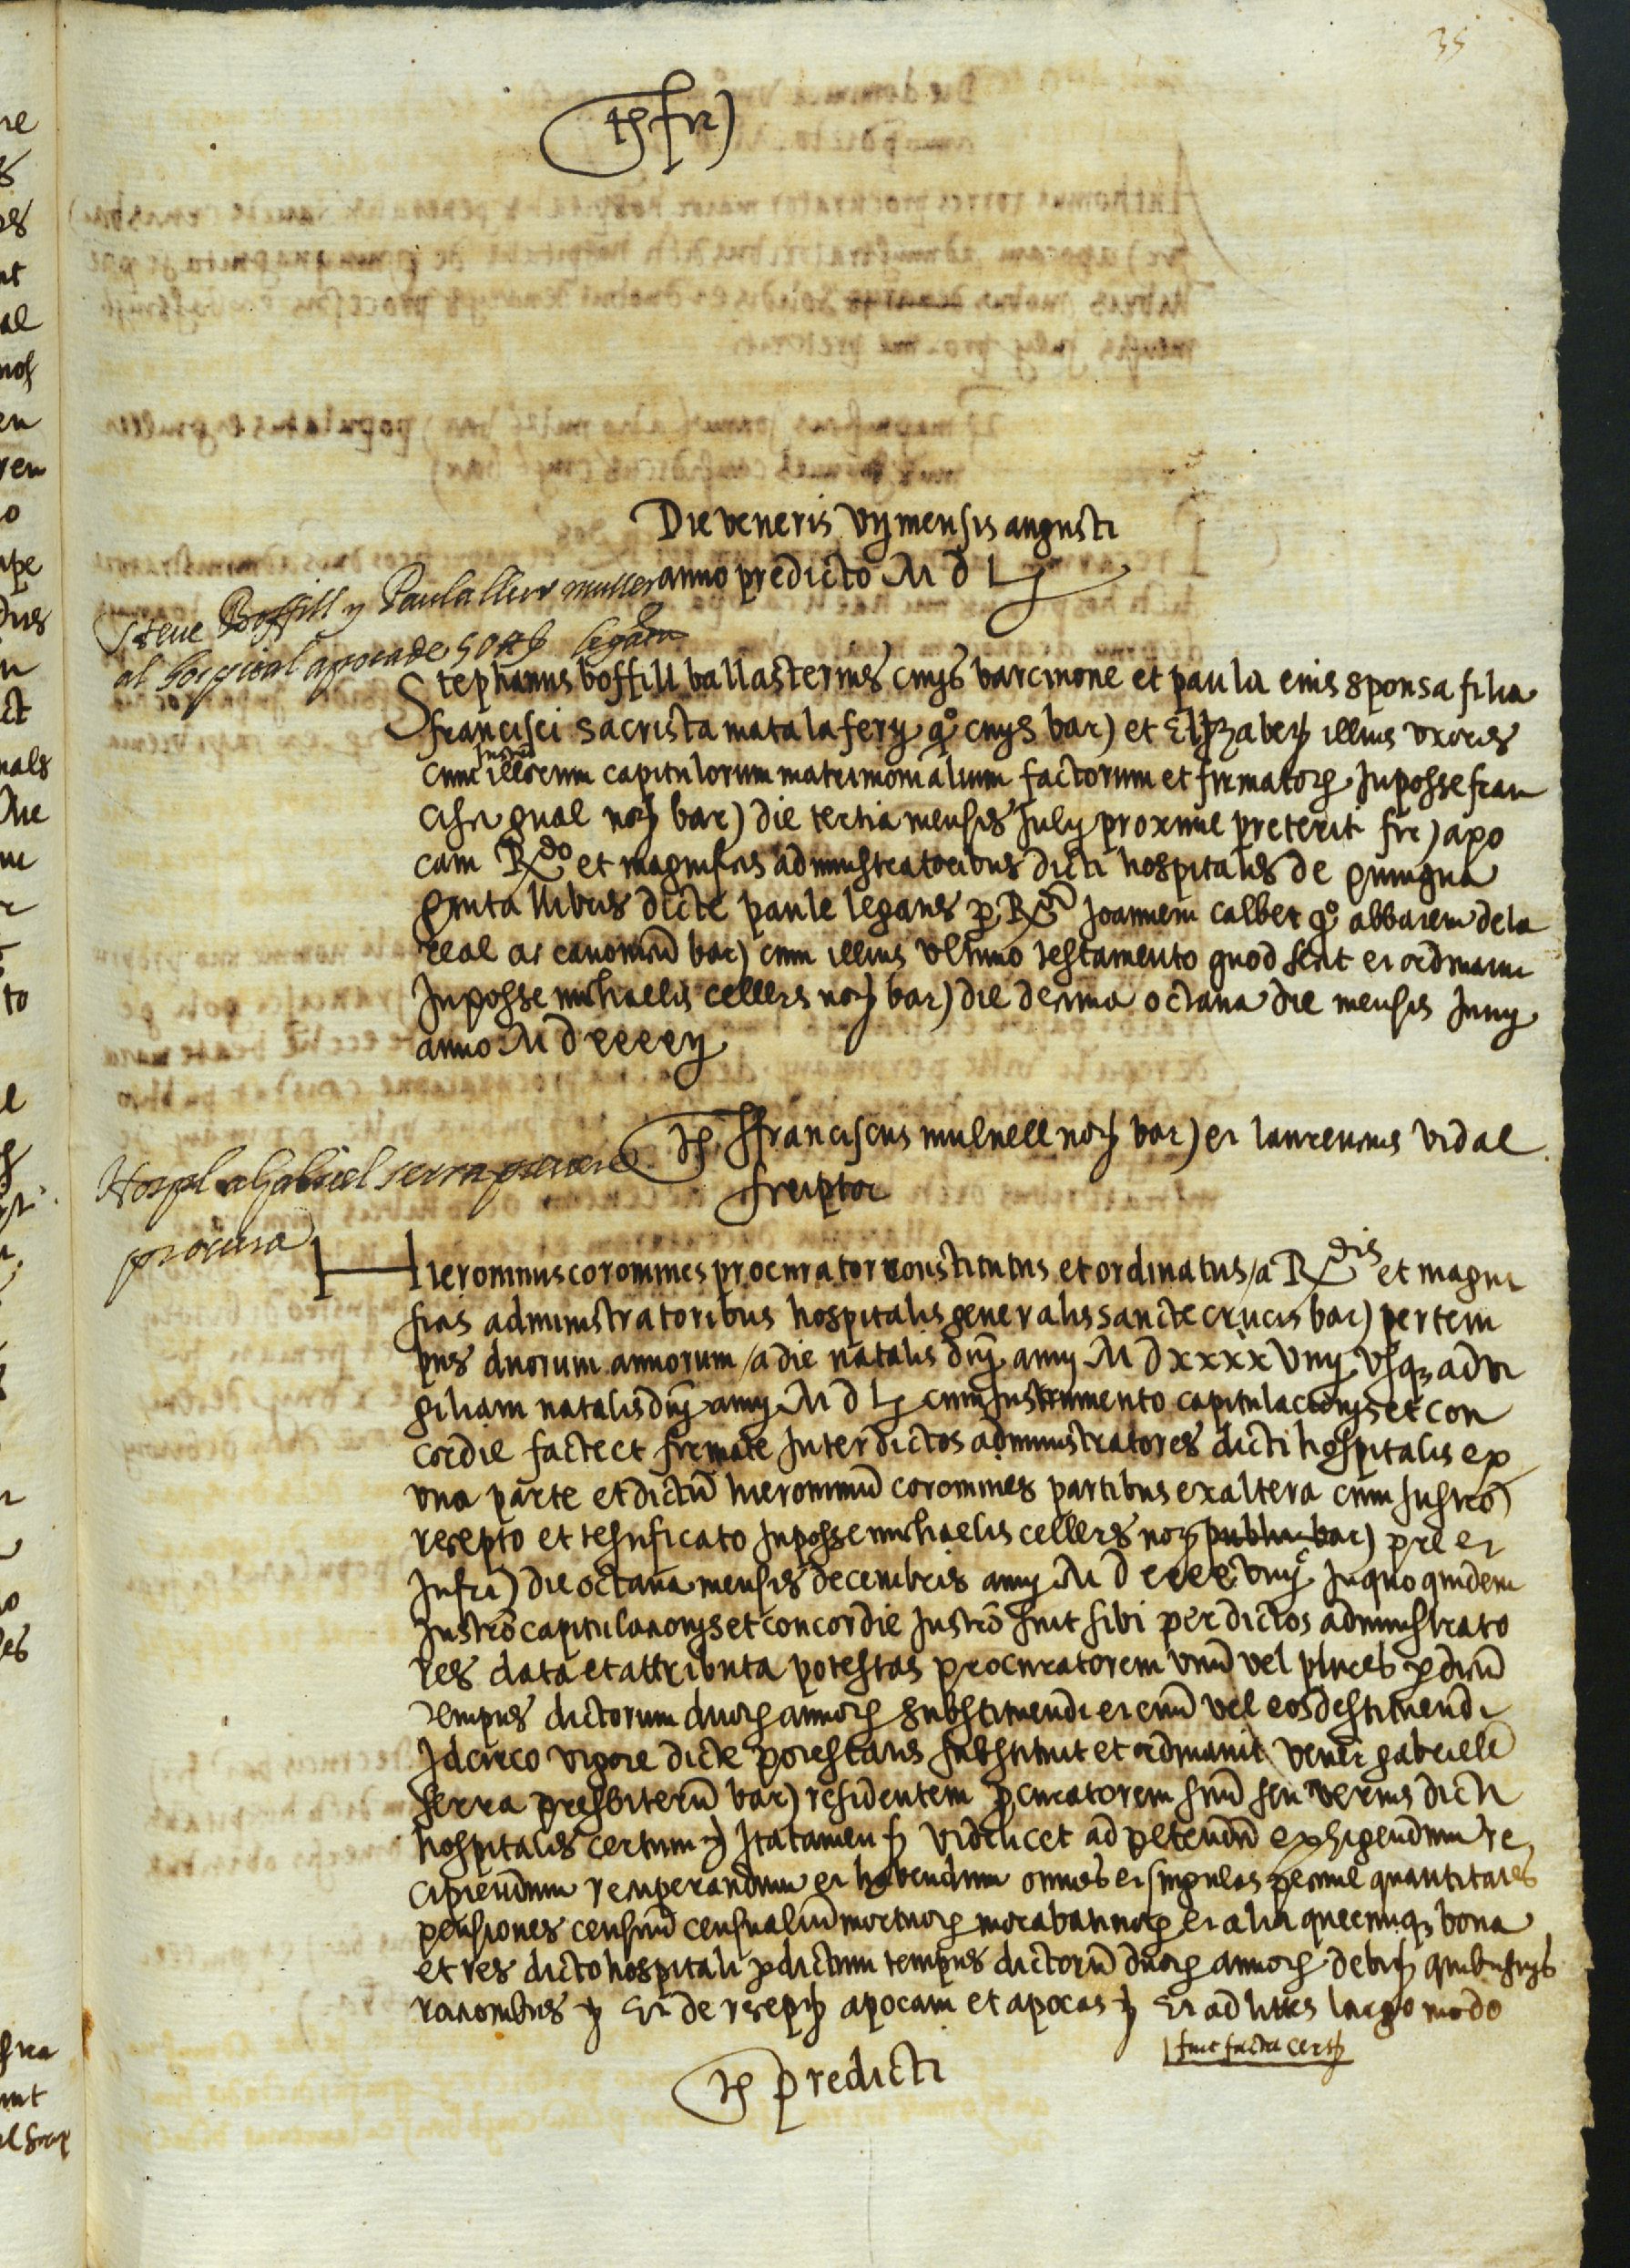 35
Die veneris vij mensis augusti
anno predicto M d Lj
Steve Boffill y Paula llur muller
al hospital apoca de 50 ℔
Stephanus boffill ballasterius civis barcinone et paula eius sponsa filia
francisci sacrista matalafery qo civys bar) et Elizabetz illius uxoris
cum illorum capitulorum matrimonialium factorum et firmatorz In posse fran
cisci gual notz bar) die tertia mensis July proxime preterit fir) apo
cam Rdo et magnificis administratoribus dicti hospitalis de quinqua
ginta llibris dicte paule legatis p R Joannem calbet qo abbatem de la
real ac canonicu bar) cum illius ultimo testamento quod fecit et ordinavit
In posse michaelis cellers notz bar) die decima octava die mensis Juny
anno M d xxxxij
Tes ffranciscus mulnell notz bar) et laurentius vidal
scriptor
Hospl a Gabriel serra prevere
procura
Hieronimus coromines procurator constitutus et ordinatus / a Rdis et magni
ficis administratoribus hospitalis generalis sancte crucis bar) per tem
pus duorum annorum / a die natalis dnj anny M d xxxx viiij usqz ad vi
giliam natalis dnj anny M d Lj cum Instrumento capitulacionys et con
cordie facte et firmate Inter dictos administratores dicti hospitalis ex
una parte et dictu hieronimu coromines partibus ex altera cum Instro
recepto et testificato In posse michaelis cellers notz public bar) pre et
Infr) die octava mensis decembris anny M d xxxx viiij In quo quidem
Instro capitulationys et concordie Instro fuit sibi per dictos administrato
res data et attributa potestas procuratorem unu vel plures p dictu
tempus dictorum duorz annorz substituendi et eum vel eos destituendi
Idcirco vigore dicte potestatis substituit et ordinavit vener gabriele
serra presbiteru bar) residentem pcuratorem suu seu verius dicti
hospitalis certum Ita tamen videlicet ad petendu exhigendum re
cipiendum recuperandum et habendum omnes et singulas pecunie quantitates
pensiones censuu censualiu mortuorz morabatinorz et alia quecumqz bona
et res dicto hospitali p dictum tempus dictoru duorz annorz debitz quibusvis
rationibus Et de receptz apocam et apocas Et ad lites largo modo
fuit facta certz
Tes predicti